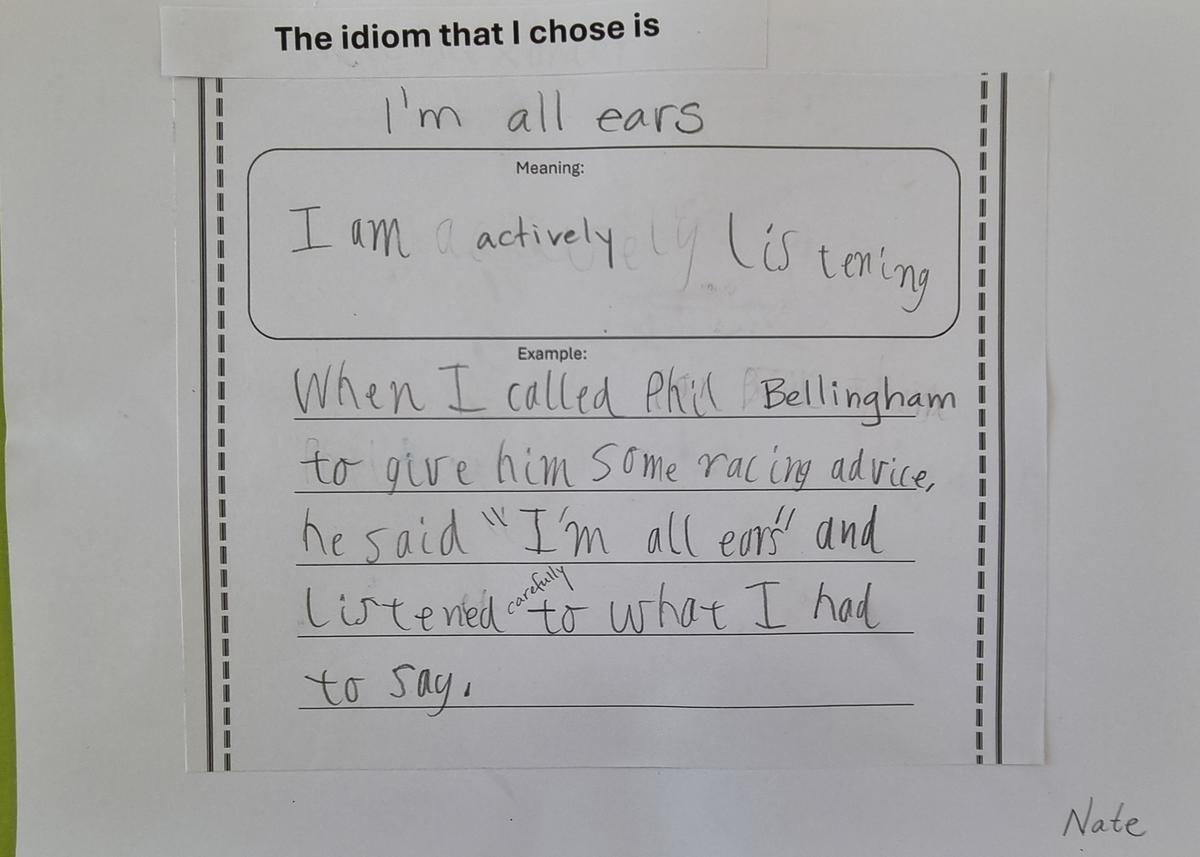 The idiom that I chose is
I'm all ears
Meaning:
I am actively listening
Example:
When I called Phil Bellingham
to give him some racing advice,
he said "I'm all ears" and
listened carefully to what I had
to say.
Nate